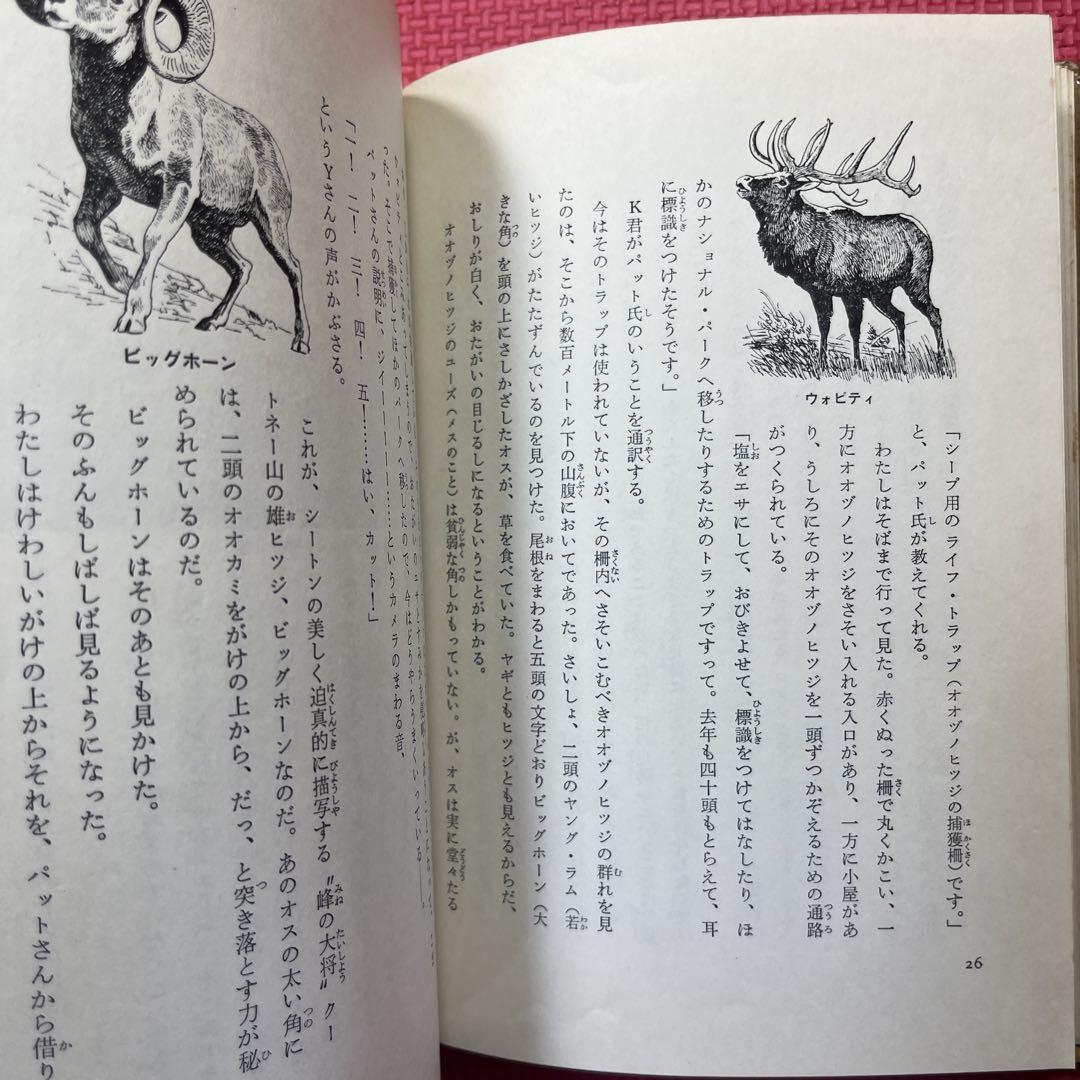 「シープ用のライフ・トラップ（オオヅノヒツジの捕獲柵）です。」
と、パット氏が教えてくれる。
わたしはそばまで行って見た。赤くぬった柵で丸くかこい、一
方にオオヅノヒツジをさそい入れる入口があり、一方に小屋があ
り、うしろにそのオオヅノヒツジを一頭ずつかぞえるための通路
がつくられている。
「塩をエサにして、おびきよせて、標識をつけてはなしたり、ほ
かのナショナル・パークへ移したりするためのトラップですって。去年も四十頭もとらえて、耳
に標識をつけたそうです。」
K君がパット氏のいうことを通訳する。
今はそのトラップは使われていないが、その柵内へさそいこむべきオオヅノヒツジの群れを見
たのは、そこから数百メートル下の山腹においてであった。さいしょ、二頭のヤング・ラム（若
いヒツジ）がたたずんでいるのを見つけた。尾根をまわると五頭の文字どおりビッグホーン（大
きな角）を頭の上にさしかざしたオスが、草を食べていた。ヤギともヒツジとも見えるからだ、
おしりが白く、おたがいの目じるしになるということがわかる。
オオヅノヒツジのユーズ（メスのこと）は貧弱な角しかもっていない。が、オスは実に堂々たる
ウォピティ
26
った。そこで捕獲してほかのパークへ移したので、今はどうやらうまくいっている――
パットさんの説明に、ジイーーーー……というカメラのまわる音、
「一！　二！　三！　四！　五！……はい、カット！」
というYさんの声がかぶさる。
ビッグホーン
これが、シートンの美しく迫真的に描写する“峰の大将”クー
トネー山の雄ヒツジ、ビッグホーンなのだ。あのオスの太い角に
は、二頭のオオカミをがけの上から、だっ、と突き落とす力が秘
められているのだ。
ビッグホーンはそのあとも見かけた。
そのふんもしばしば見るようになった。
わたしはけわしいがけの上からそれを、パットさんから借り